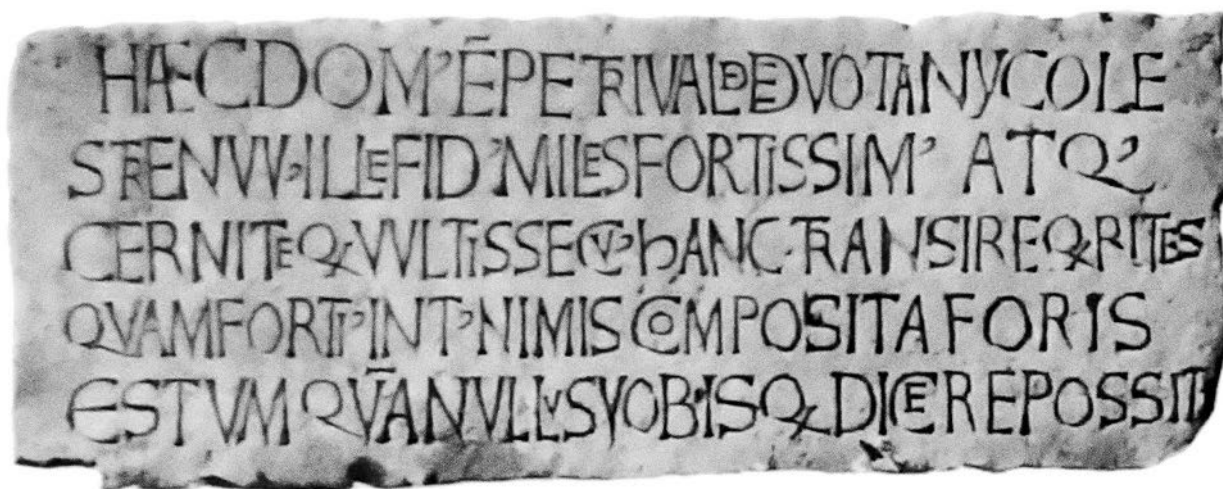 HÆC DOM' Ē PETRI VALDE DEVOTA NYCOLE
STRENVVS ILLE FID' MILES FORTISSIM' ATQ'
CERNITE Q VVLTIS SECV' hANC TRANSIRE Q RITES
QVAM FORTI' INT' NIMIS COMPOSITA FORIS
EST VMQVĀ NVLLVS VOBIS Q DICERE POSSIT